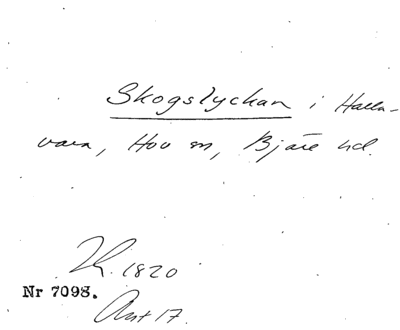 Skogslyckan i Halla-
vara, Hov sn, Bjäre hd.
1820
Nr 7098.
Akt 17.